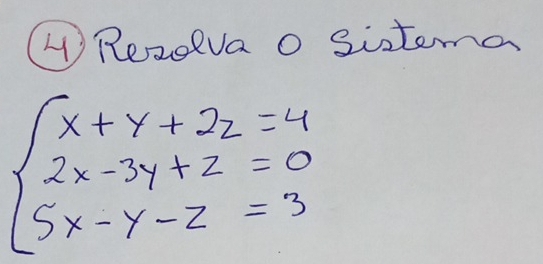 4 Resolva o Sistema
x + y + 2z = 4
2x - 3y + z = 0
5x - y - z = 3